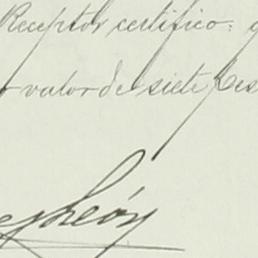 Receptor certifico:
valor de siete
León